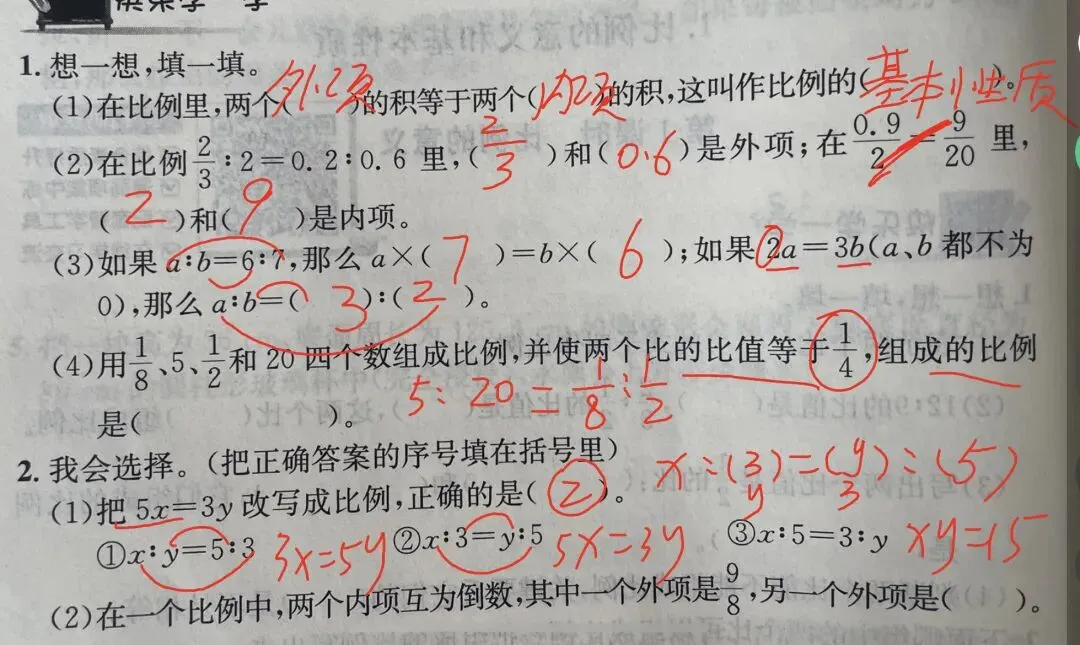 1. 想一想,填一填。
(1)在比例里,两个(外项)的积等于两个(内项)的积,这叫作比例的(基本性质)。
(2)在比例2/3:2=0.2:0.6里,(2/3)和(0.6)是外项;在0.9/2=9/20里,
(2)和(9)是内项。
(3)如果a:b=6:7,那么a×(7)=b×(6);如果2a=3b(a、b都不为
0),那么a:b=(3):(2)。
(4)用1/8、5、1/2和20四个数组成比例,并使两个比的比值等于1/4,组成的比例
5:20=1/8:1/2
是( )。
2. 我会选择。(把正确答案的序号填在括号里)
x:(3)=(y):(5)
y 3
(1)把5x=3y改写成比例,正确的是(2)。
①x:y=5:3 3x=5y ②x:3=y:5 5x=3y ③x:5=3:y xy=15
(2)在一个比例中,两个内项互为倒数,其中一个外项是9/8,另一个外项是( )。